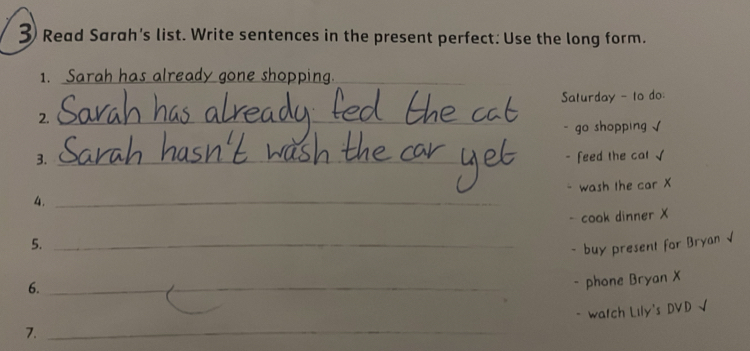 3 Read Sarah's list. Write sentences in the present perfect. Use the long form.
1. Sarah has already gone shopping.
2. Sarah has already fed the cat
3. Sarah hasn't wash the car yet
4.
5.
6.
7.
Saturday - to do:
- go shopping ✓
- feed the cat ✓
- wash the car X
- cook dinner X
- buy present for Bryan ✓
- phone Bryan X
- watch Lily's DVD ✓